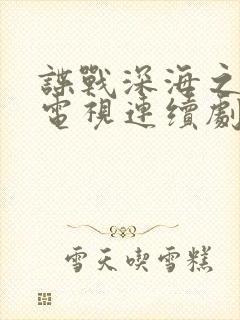 諜戰深海之
電視連續劇
雪天喫雪糕